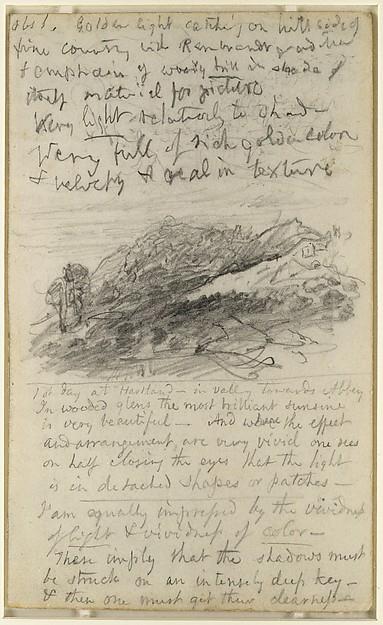 obs 1. Golden light catching on hill side of
fine country with Rembrandt
& emphasis of woody hill in shade
itself material for picture
Very light relatively to shad—
Very full of rich golden color
& velvety & real in texture
1st day at Hartland— in valley towards Abbey
In wooded glens the most brilliant sunsine
is very beautiful— And where the effect
and arrangement are very vivid one sees
on half closing the eyes that the light
is in detached shapes or patches—
I am equally impressed by the vividness
of light & vividness of color—
These imply that the shadows must
be struck on an intensely deep key—
& then one must get their clearness—